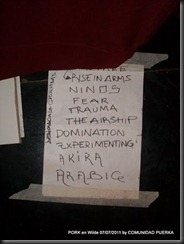 RISE IN ARMS
NINOS
FEAR
TRAUMA
THE AIRSHIP
DOMINATION
"EXPERIMENTING"
AKIRA
ARABICO
PORK en Wilde 07/07/2011 by COMUNIDAD PUERKA